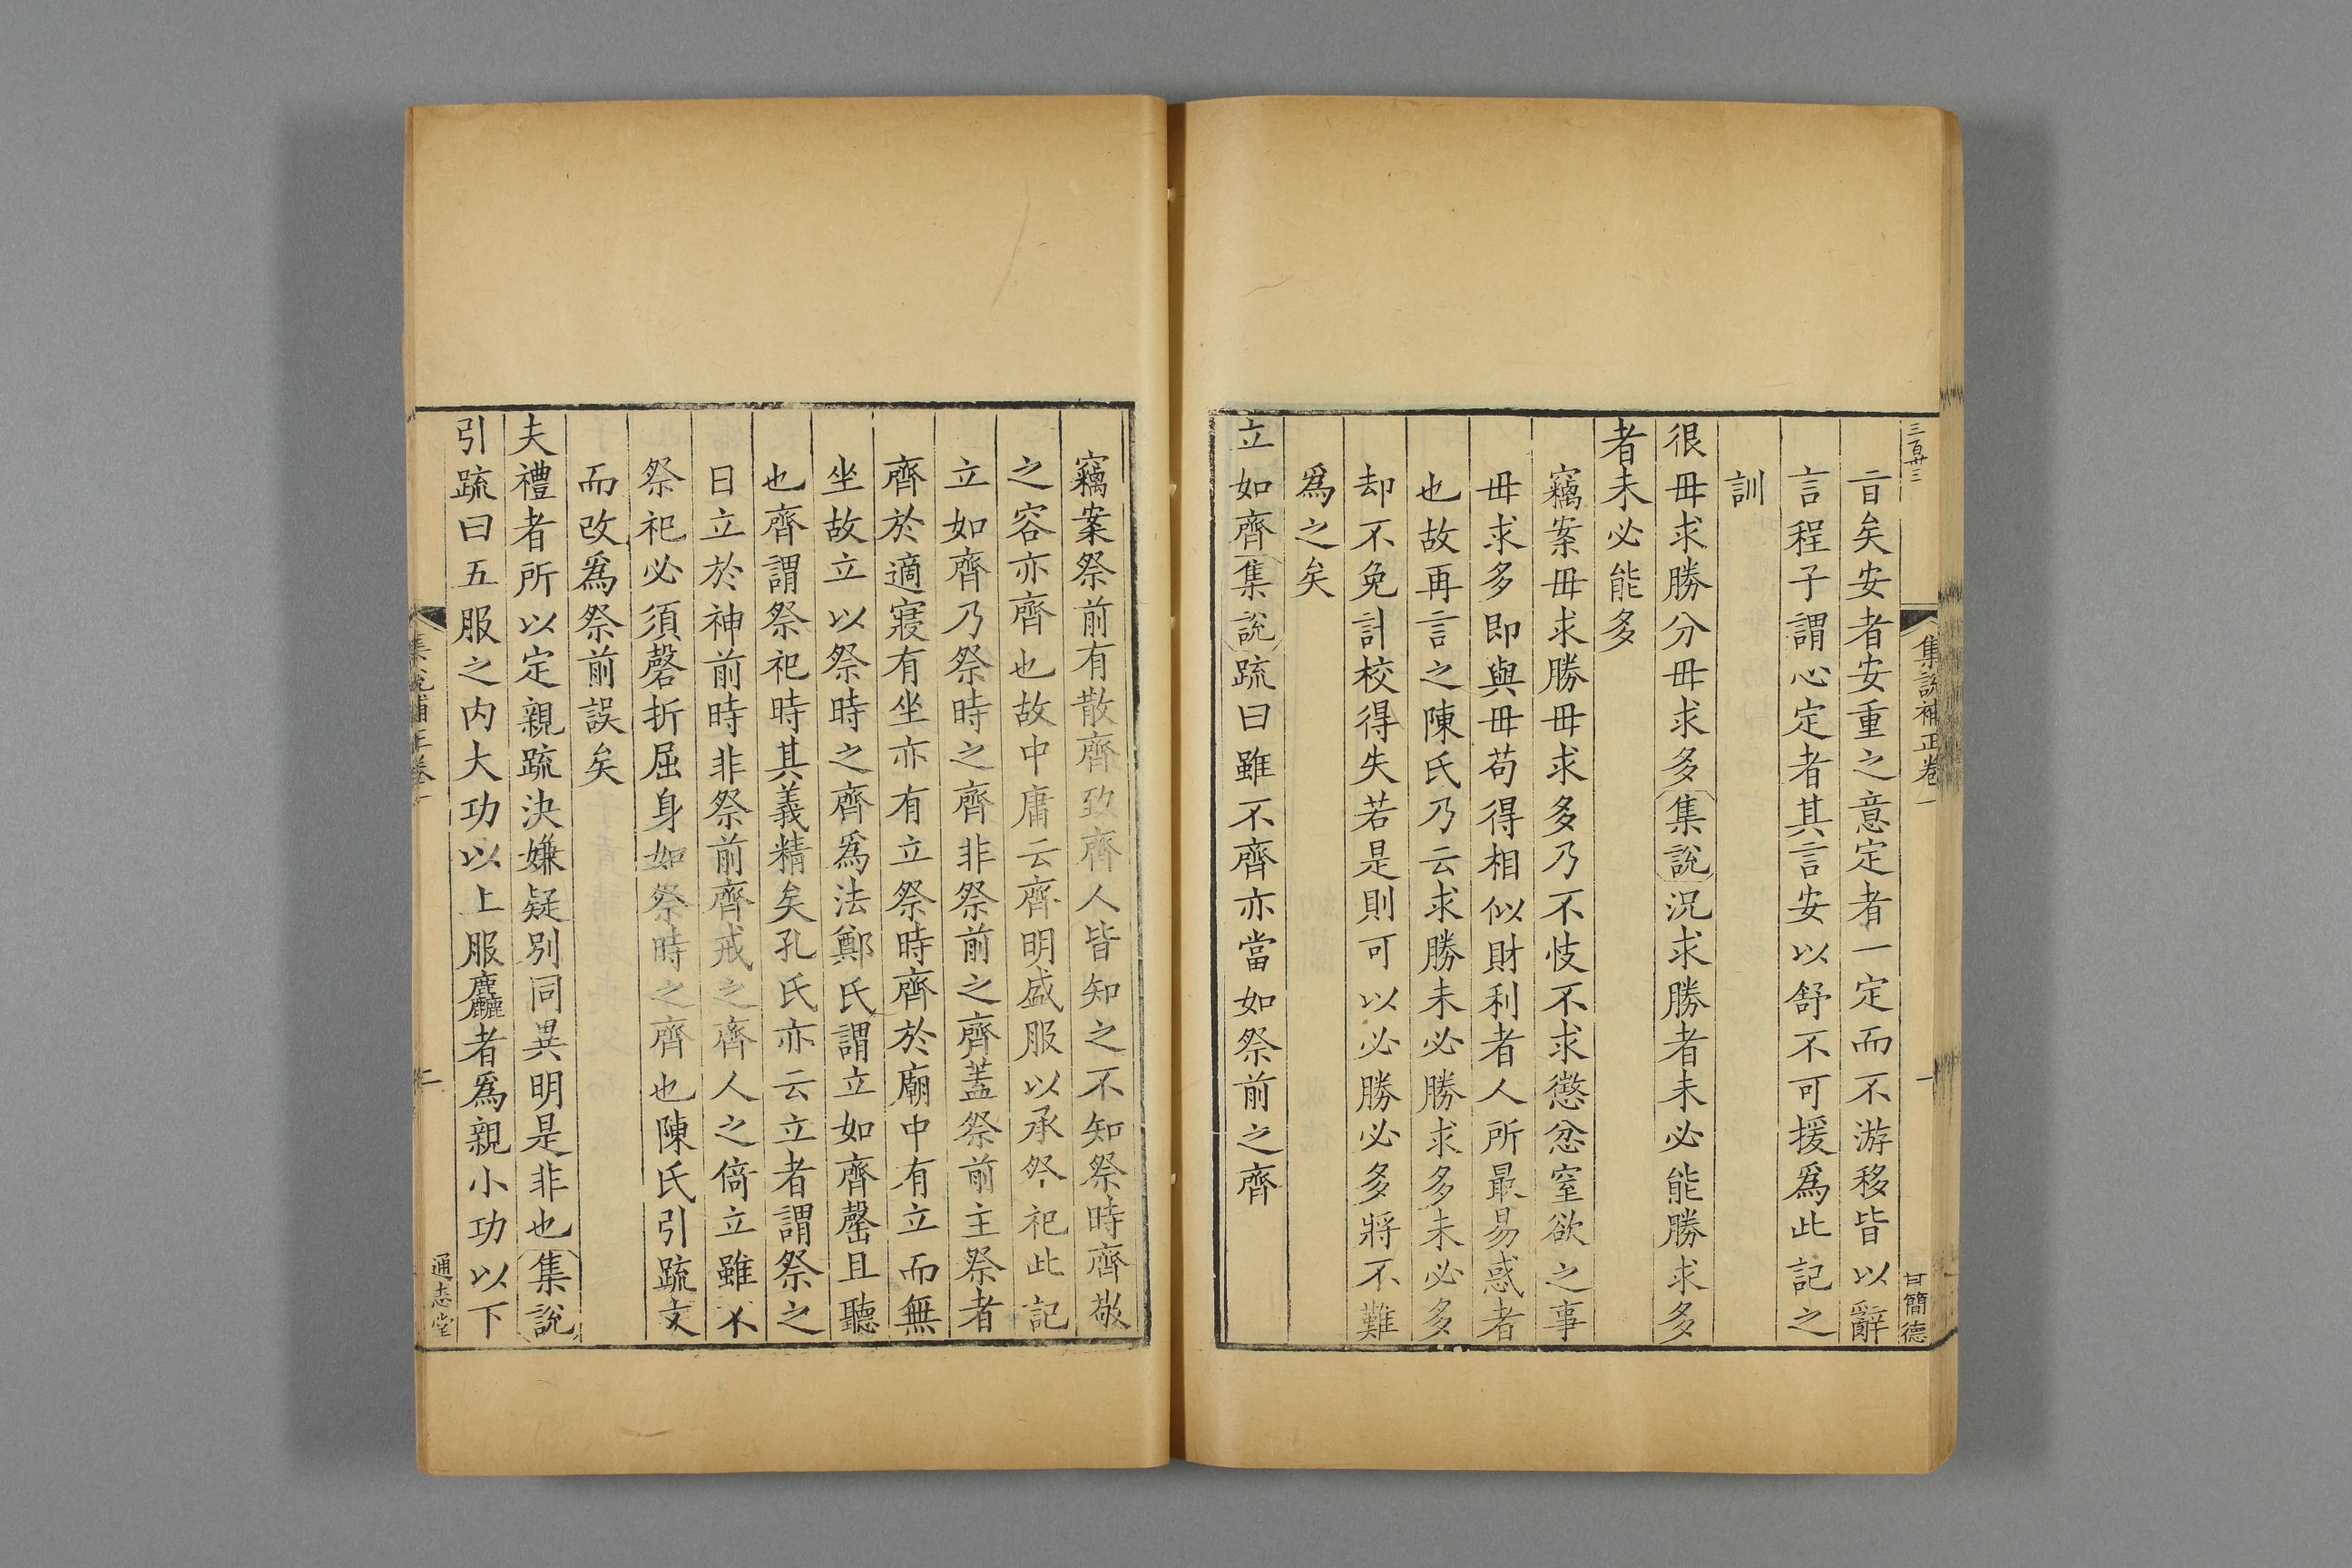 三百卅三
集説補正卷一
一
甘簡德
言矣安者安重之意定者一定而不游移皆以辭
言程子謂心定者其言安以舒不可援爲此記之
訓
很毋求勝分毋求多集說况求勝者未必能勝求多
者未必能多
竊案毋求勝毋求多乃不忮不求懲忿窒欲之事
毋求多即與毋苟得相似財利者人所最易惑者
也故再言之陳氏乃云求勝未必勝求多未必多
却不免計校得失若是則可以必勝必多將不難
爲之矣
立如齊集說疏曰雖不齊亦當如祭前之齊
竊案祭前有散齊致齊人皆知之不知祭時齊敬
之容亦齊也故中庸云齊明盛服以承祭祀此記
立如齊乃祭時之齊非祭前之齊蓋祭前主祭者
齊於適寢有坐亦有立祭時齊於廟中有立而無
坐故立以祭時之齊爲法鄭氏謂立如齊罄且聽
也齊謂祭祀時其義精矣孔氏亦云立者謂祭之
日立於神前時非祭前齊戒之齊人之倚立雖不
祭祀必須磬折屈身如祭時之齊也陳氏引疏文
而改爲祭前誤矣
夫禮者所以定親疏決嫌疑別同異明是非也集說
引疏曰五服之内大功以上服麤者爲親小功以下
集說補正卷一
二
通志堂